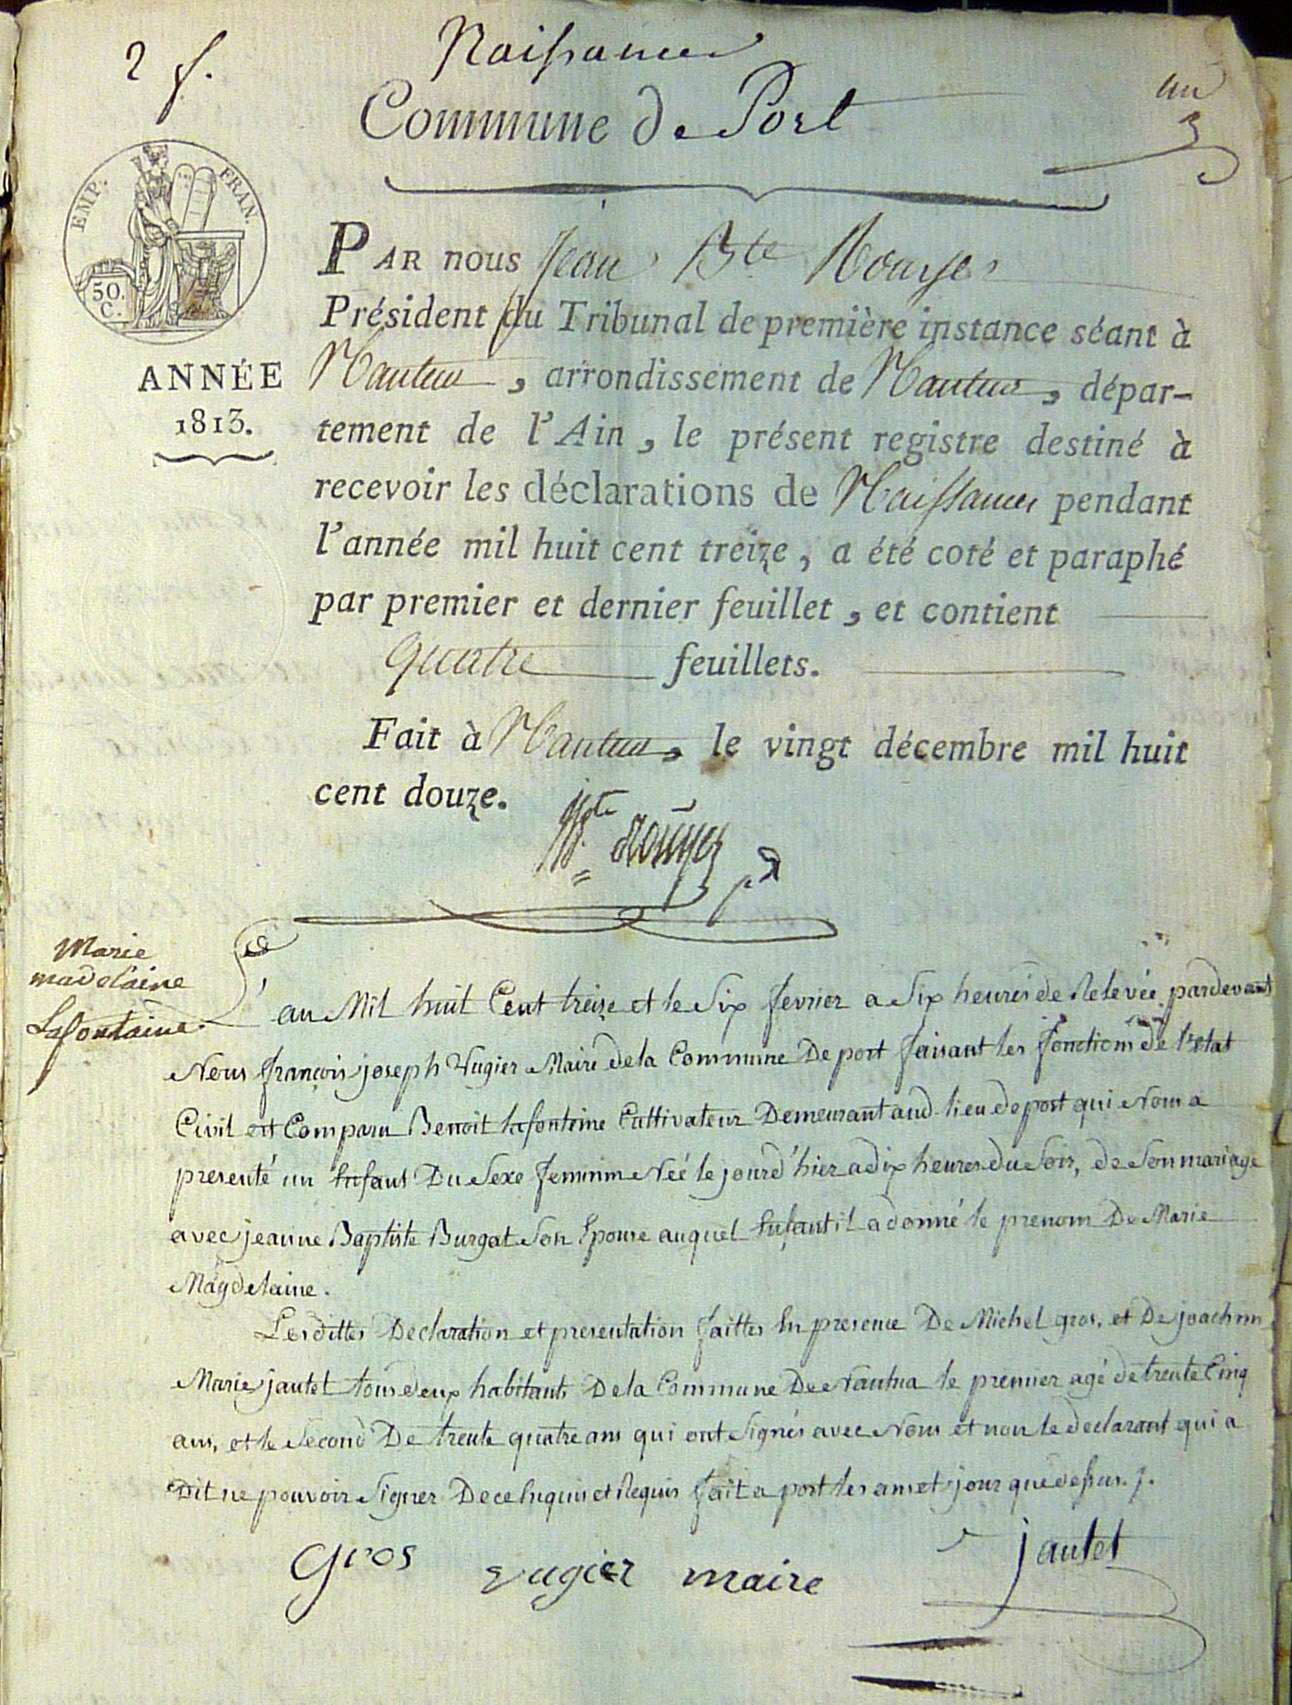 2 f.
Naissances
Commune de Port
un
3
EMP. FRAN.
50. C.
ANNÉE
1813.
PAR nous Jean Bte Rouyer
Président du Tribunal de première instance séant à
Nantua, arrondissement de Nantua, dépar-
tement de l'Ain, le présent registre destiné à
recevoir les déclarations de Naissances pendant
l'année mil huit cent treize, a été coté et paraphé
par premier et dernier feuillet, et contient
quatre feuillets.
Fait à Nantua, le vingt décembre mil huit
cent douze.
Bte Rouyer
Marie
madelaine
Lafontaine.
L'an Mil huit Cent treize et le Six fevrier a Six heures de Relevée pardevant
Nous françois joseph Vugier Maire de la Commune De port faisant les fonctions de l'etat
Civil est Comparu Benoit lafontaine Cultivateur Demeurant aud. lieu de port qui Nous a
presenté un Enfant Du Sexe feminin Née le jourd'hier a dix heures du Soir, de Son mariage
avec jeanne Baptiste Burgat Son Epouse auquel Enfant il a donné le prenom De Marie
Magdelaine.
Lesdittes Declaration et presentation faittes En presence De Michel gros, et De joachim
Marie jautet tous deux habitants De la Commune De Nantua le premier agé de trente Cinq
ans, et le Second De trente quatre ans qui ont Signés avec Nous et non le declarant qui a
Dit ne pouvoir Signer De ce Enquis et Requis fait a port les an et jour que dessus. /.
gros vugier maire jautet